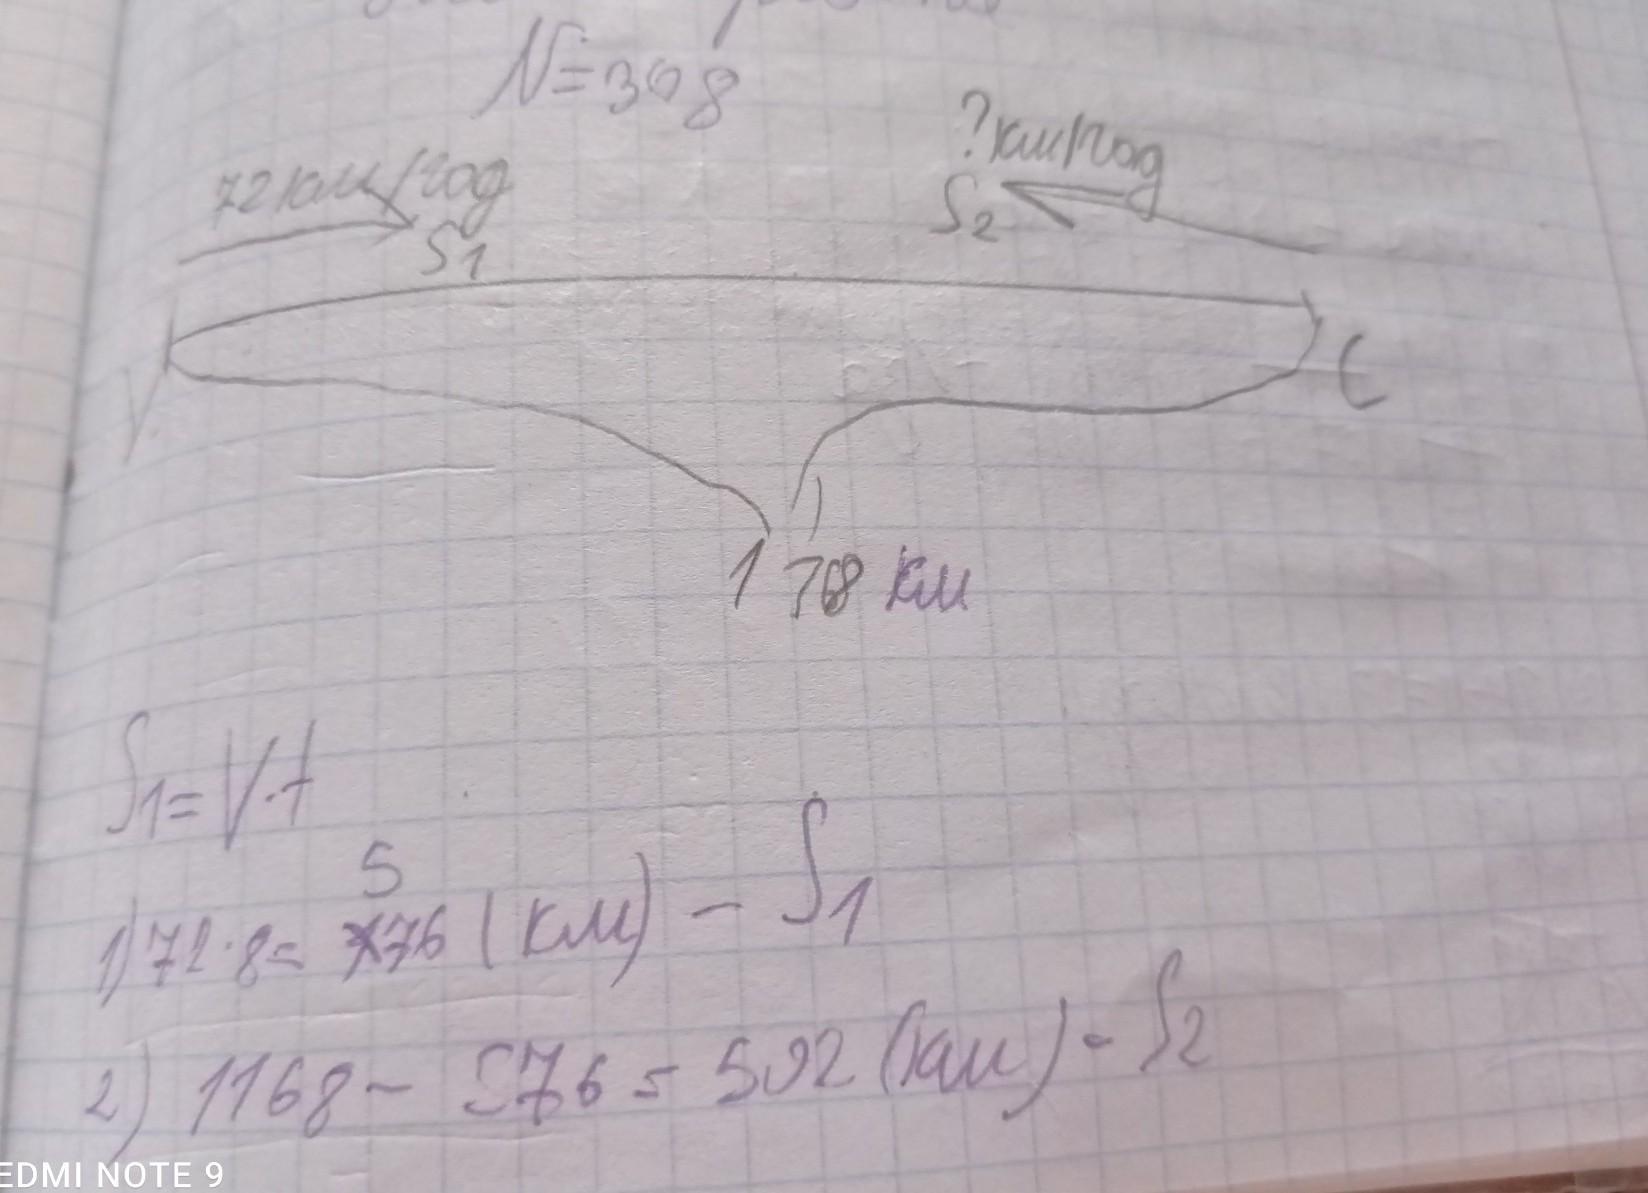 N=308
72 км/год
S1
?км/год
S2
V
t
1 768 км
S1=V·t
5
1) 72·8= 776 (км) – S1
2) 1168 – 576 = 592 (км) – S2
EDMI NOTE 9